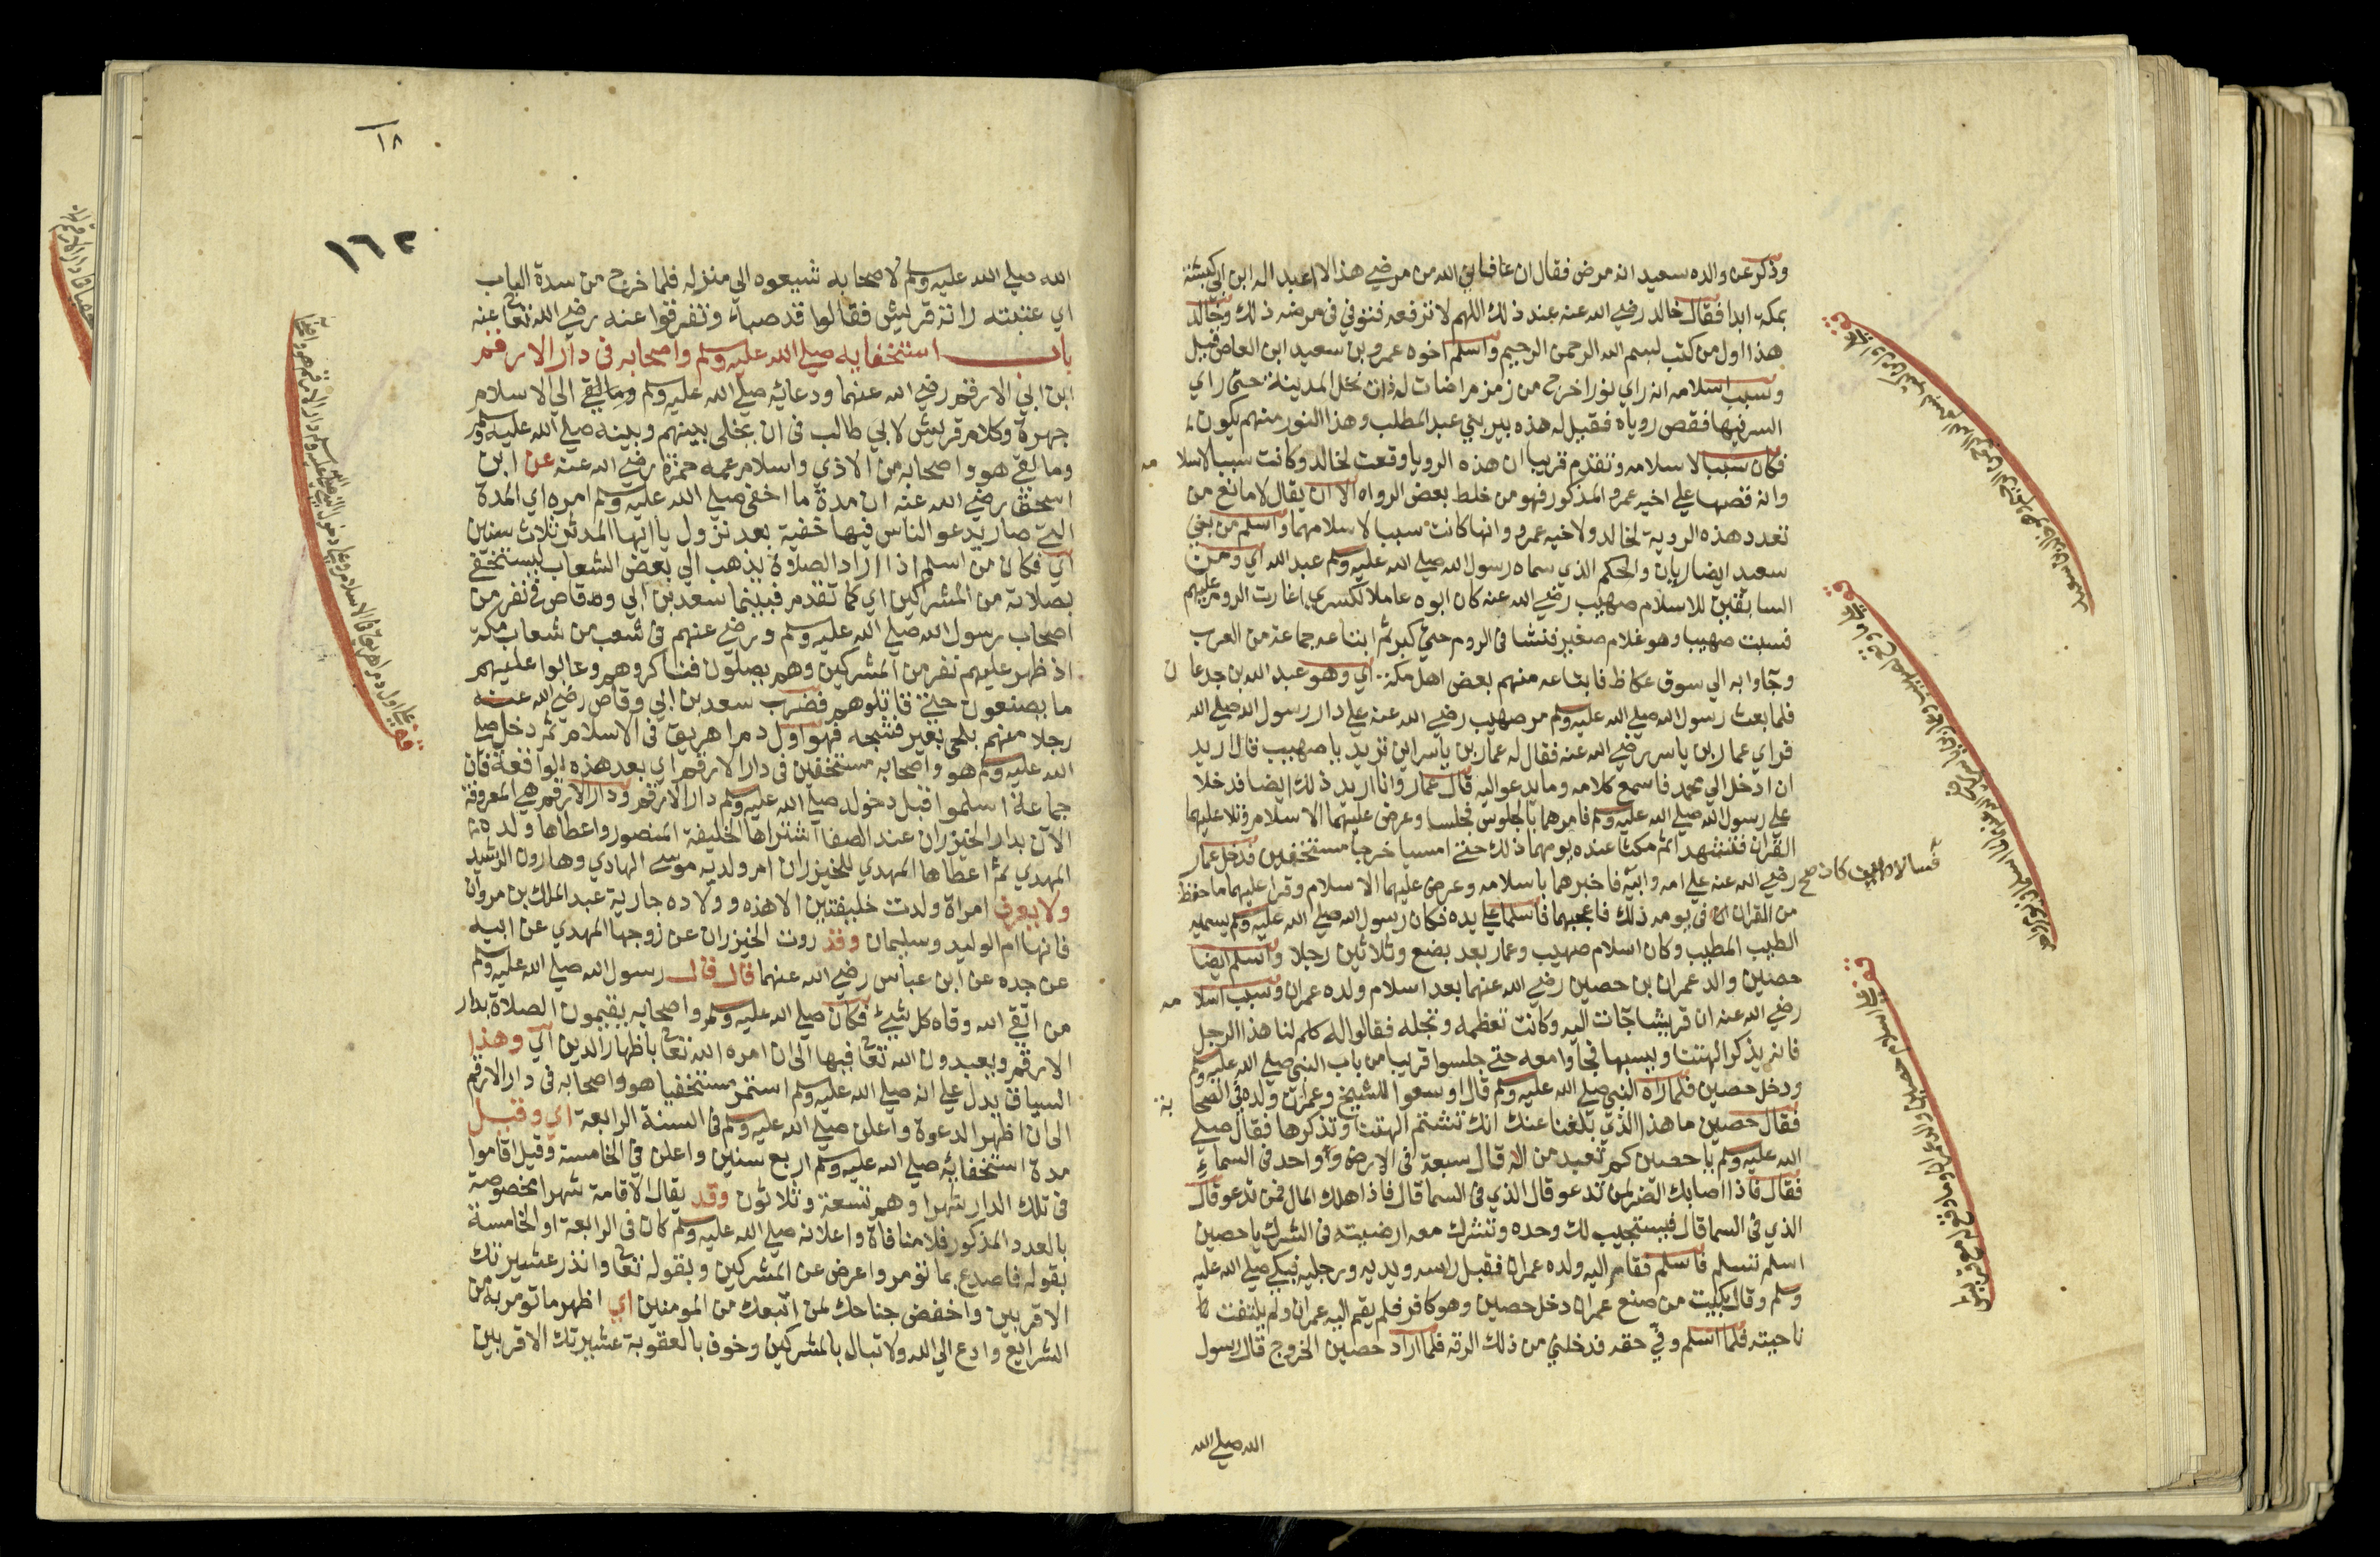 وذكر عن والده سعيد انه مرض فقال ان عافاني الله من مرضي هذا لا عبد اله ابن ابي كبشة
بمكة ابدا فقال خالد رضي الله عنه عند ذلك اللهم لا ترفعه فتوفي في مرضه ذلك وخالد
هذا اول من كتب بسم الله الرحمن الرحيم واسلم اخوه عمرو بن سعيد ابن العاص قيل
وسبب اسلامه انه راي نورا خرج من زمزم اضات له نخل المدينة حتي راي
البسر فيها فقص روياه فقيل له هذه بير بني عبد المطلب وهذا النور منهم يكون
فكان سببا لاسلامه وتقدم قريبا ان هذه الرويا وقعت لخالد وكانت سببا لاسلامه
وانه قصها علي اخيه عمرو المذكور فهو من خلط بعض الرواه الا ان يقال لا مانع من
تعدد هذه الروية لخالد ولاخيه عمرو وانها كانت سببا لاسلامهما واسلم من بني
سعيد ايضا ريان والحكم الذي سماه رسول الله صلي الله عليه وسلم عبد الله اي ومن
السابقين للاسلام صهيب رضي الله عنه كان ابوه عاملا لكسري اغارت الروم عليهم
فسبت صهيبا وهو غلام صغير فنشا في الروم حتي كبر ثم ابتاعه جماعة من العرب
وجاوا به الي سوق عكاظ فابتاعه منهم بعض اهل مكة اي وهو عبد الله بن جدعان
فلما بعث رسول الله صلي الله عليه وسلم مر صهيب رضي الله عنه علي دار رسول الله صلي الله
فراي عمار بن ياسر رضي الله عنه فقال له عمار بن ياسر اين تريد يا صهيب قال اريد
ان ادخل الي محمد فاسمع كلامه وما يدعو اليه قال عمار وانا اريد ذلك ايضا فدخلا
علي رسول الله صلي الله عليه وسلم فامرهما بالجلوس فجلسا وعرض عليهما الاسلام وتلا عليهما
القران فتشهدا ثم مكثا عنده يومهما ذلك حتي امسيا خرجا مستخفيين فدخل عمار
رضي الله عنه علي امه وابيه فاخبرهما باسلامه وعرض عليهما الاسلام وقرا عليهما ما حفظ
من القران في يومه ذلك فاعجبهما فاسلما علي يده فكان رسول الله صلي الله عليه وسلم يسميه
الطيب المطيب وكان اسلام صهيب وعمار بعد بضع وثلاثين رجلا واسلم ايضا
حصين والد عمران بن حصين رضي الله عنهما بعد اسلام ولده عمران وسبب اسلامه
رضي الله عنه ان قريشا جات اليه وكانت تعظمه وتجله فقالوا له كلم لنا هذا الرجل
فانه يذكر الهتنا ويسبها فجاوا معه حتي جلسوا قريبا من باب النبي صلي الله عليه وسلم
ودخل حصين فلما راه النبي صلي الله عليه وسلم قال اوسعوا للشيخ وعمران ولده في الصحابة
فقال حصين ما هذا الذي بلغنا عنك انك تشتم الهتنا وتذكرها فقال صلي
الله عليه وسلم يا حصين كم تعبد من اله قال سبعة في الارض وواحد في السماء
فقال فاذا اصابك الضر لمن تدعو قال الذي في السما قال فاذا هلك المال فمن تدعو قال
الذي في السما قال فيستجيب لك وحده وتشرك معه ارضيته في الشرك يا حصين
اسلم تسلم فاسلم فقام اليه ولده عمران فقبل راسه ويديه ورجليه فبكي صلي الله عليه
وسلم وقال بكيت من صنع عمران دخل حصين وهو كافر فلم يقم اليه عمران ولم يلتفت
ناحيته فلما اسلم وفي حقه فدخلني من ذلك الرقه فلما اراد حصين الخروج قال رسول
الله صلي الله
قف علي اسلام حصين والد عمران وما وقع له مع قريش
١٨
١٦٢
الله صلي الله عليه وسلم لاصحابه شيعوه الي منزله فلما خرج من سدة الباب
اي عتبته راته قريش فقالوا قد صبا وتفرقوا عنه رضي الله تعالي عنه
باب استخفايه صلي الله عليه وسلم واصحابه في دار الارقم
ابن ابي الارقم رضي الله عنهما ودعائه صلي الله عليه وسلم الي الاسلام
جهرة وكلام قريش لابي طالب في ان يخلي بينهم وبينه صلي الله عليه وسلم
وما لقي هو واصحابه من الاذي واسلام عمه حمزة رضي الله عنه عن ابن
اسحق رضي الله عنه ان مدة ما اخفي صلي الله عليه وسلم امره اي المدة
التي صار يدعو الناس فيها خفية بعد نزول يا ايها المدثر ثلاث سنين
اي فكان من اسلم اذا اراد الصلاة يذهب الي بعض الشعاب يستخفي
بصلاته من المشركين اي كما تقدم فبينما سعد بن ابي وقاص في نفر من
اصحاب رسول الله صلي الله عليه وسلم ورضي عنهم في شعب من شعاب مكة
اذ ظهر عليهم نفر من المشركين وهم يصلون فناكروهم وعابوا عليهم
ما يصنعون حتي قاتلوهم فضرب سعد بن ابي وقاص رضي الله عنه
رجلا منهم بلحي بعير فشجه فهو اول دم اهريق في الاسلام ثم دخل صلي
الله عليه وسلم هو واصحابه مستخفين في دار الارقم اي بعد هذه الواقعة فان
جماعة اسلموا قبل دخوله صلي الله عليه وسلم دار الارقم ودار الارقم هي المعروفة
الان بدار الخيزران عند الصفا اشتراها الخليفة المنصور واعطاها ولده
المهدي ثم اعطاها المهدي للخيزران ام ولديه موسي الهادي وهارون الرشيد
ولا يعرف امراة ولدت خليفتين الا هذه وولاده جارية عبد الملك بن مروان
فانها ام الوليد وسليمان وقد روت الخيزران عن زوجها المهدي عن ابيه
عن جده عن ابن عباس رضي الله عنهما قال قال رسول الله صلي الله عليه وسلم
من اتقي الله وقاه كل شيء فكان صلي الله عليه وسلم واصحابه يقيمون الصلاة بدار
الارقم ويعبدون الله تعالي فيها الي ان امره الله تعالي باظهار الدين اي وهذا
السياق يدل علي انه صلي الله عليه وسلم استمر مستخفيا هو واصحابه في دار الارقم
الي ان اظهر الدعوة واعلن صلي الله عليه وسلم في السنة الرابعة اي وقيل
مدة استخفائه صلي الله عليه وسلم اربع سنين واعلن في الخامسة وقيل اقاموا
في تلك الدار شهرا وهم تسعة وثلاثون وقد يقال الاقامة شهرا مخصوصة
بالعدد المذكور فلا منافاة واعلانه صلي الله عليه وسلم كان في الرابعة او الخامسة
بقوله فاصدع بما تومر واعرض عن المشركين وبقوله تعالي وانذر عشيرتك
الاقربين واخفض جناحك لمن اتبعك من المومنين اي اظهر ما تومر به من
الشرايع وادع الي الله ولا تبال بالمشركين وخوف بالعقوبة عشيرتك الاقربين